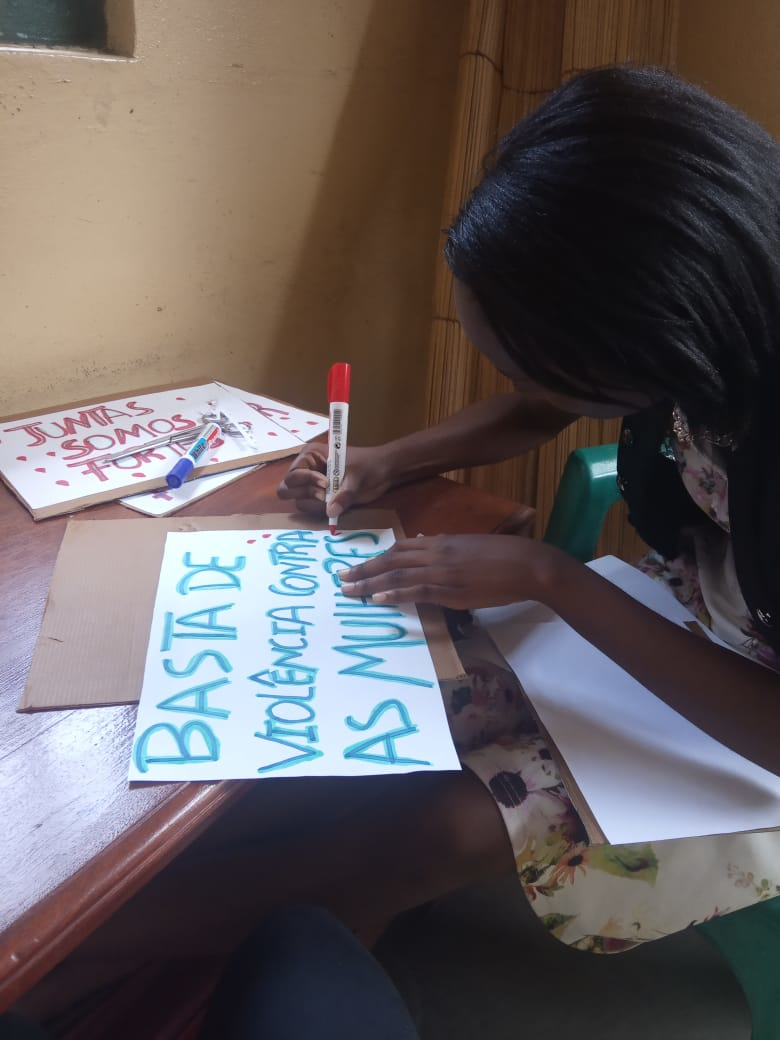 JUNTAS
SOMOS
BASTA DE
VIOLÊNCIA CONTRA
AS MULHERES